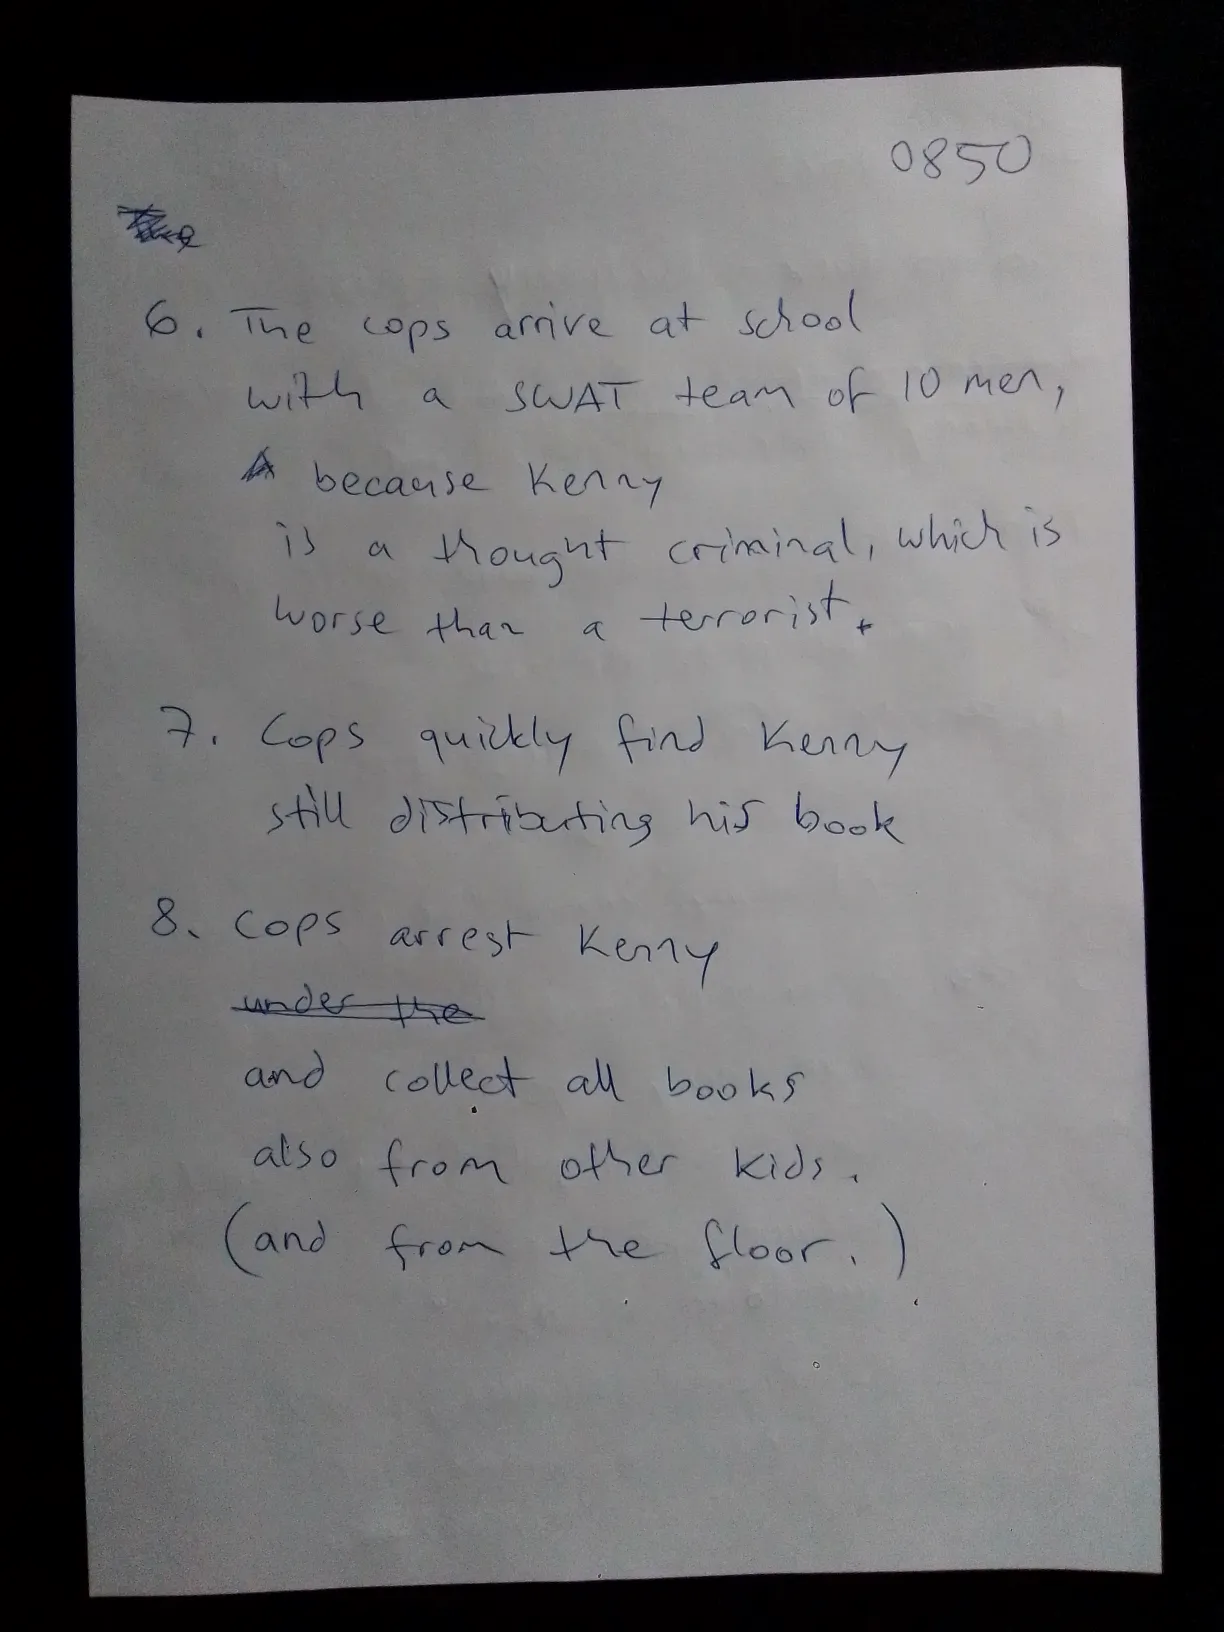 0850
6. The cops arrive at school
with a SWAT team of 10 men,
because Kenny
is a thought criminal, which is
worse than a terrorist.
7. Cops quickly find Kenny
still distributing his book
8. Cops arrest Kenny
under the
and collect all books
also from other kids.
(and from the floor.)